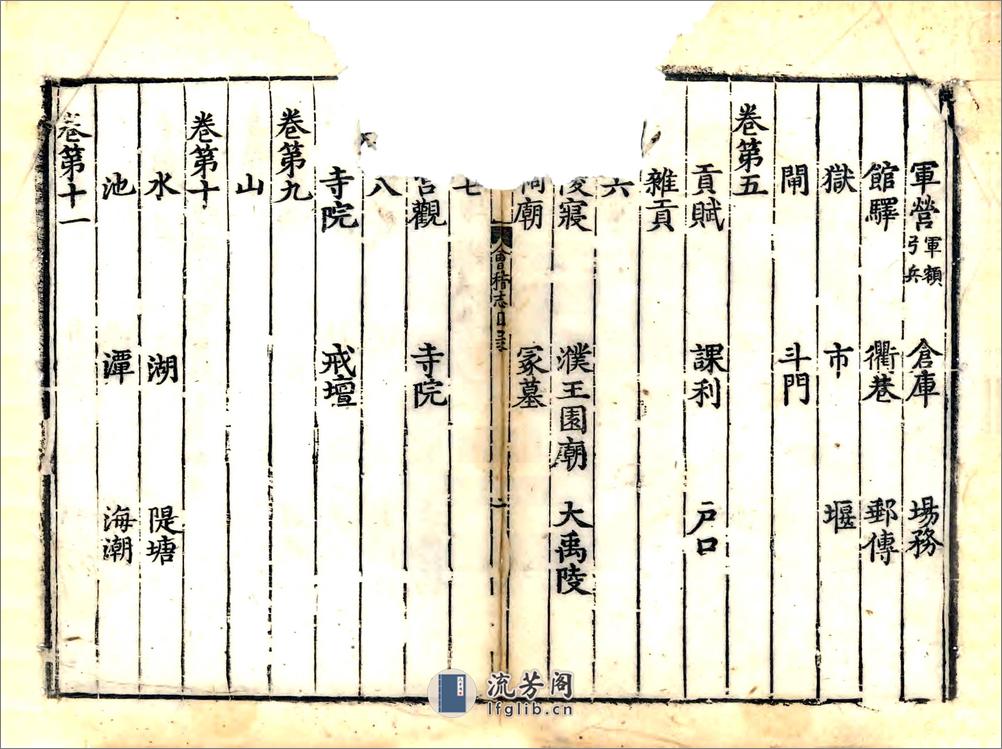 軍營 軍額弓兵 倉庫 場務
館驛 衢巷 郵傳
獄 市 堰
閘 斗門
卷第五
貢賦 課利 户口
雜貢
六
陵寢 濮王園廟 大禹陵
祠廟 冢墓
會稽志目录 二
七
宮觀 寺院
八
寺院 戒壇
卷第九
山
卷第十
水 湖 隄塘
池 潭 海潮
卷第十一
流芳阁
lfglib.cn